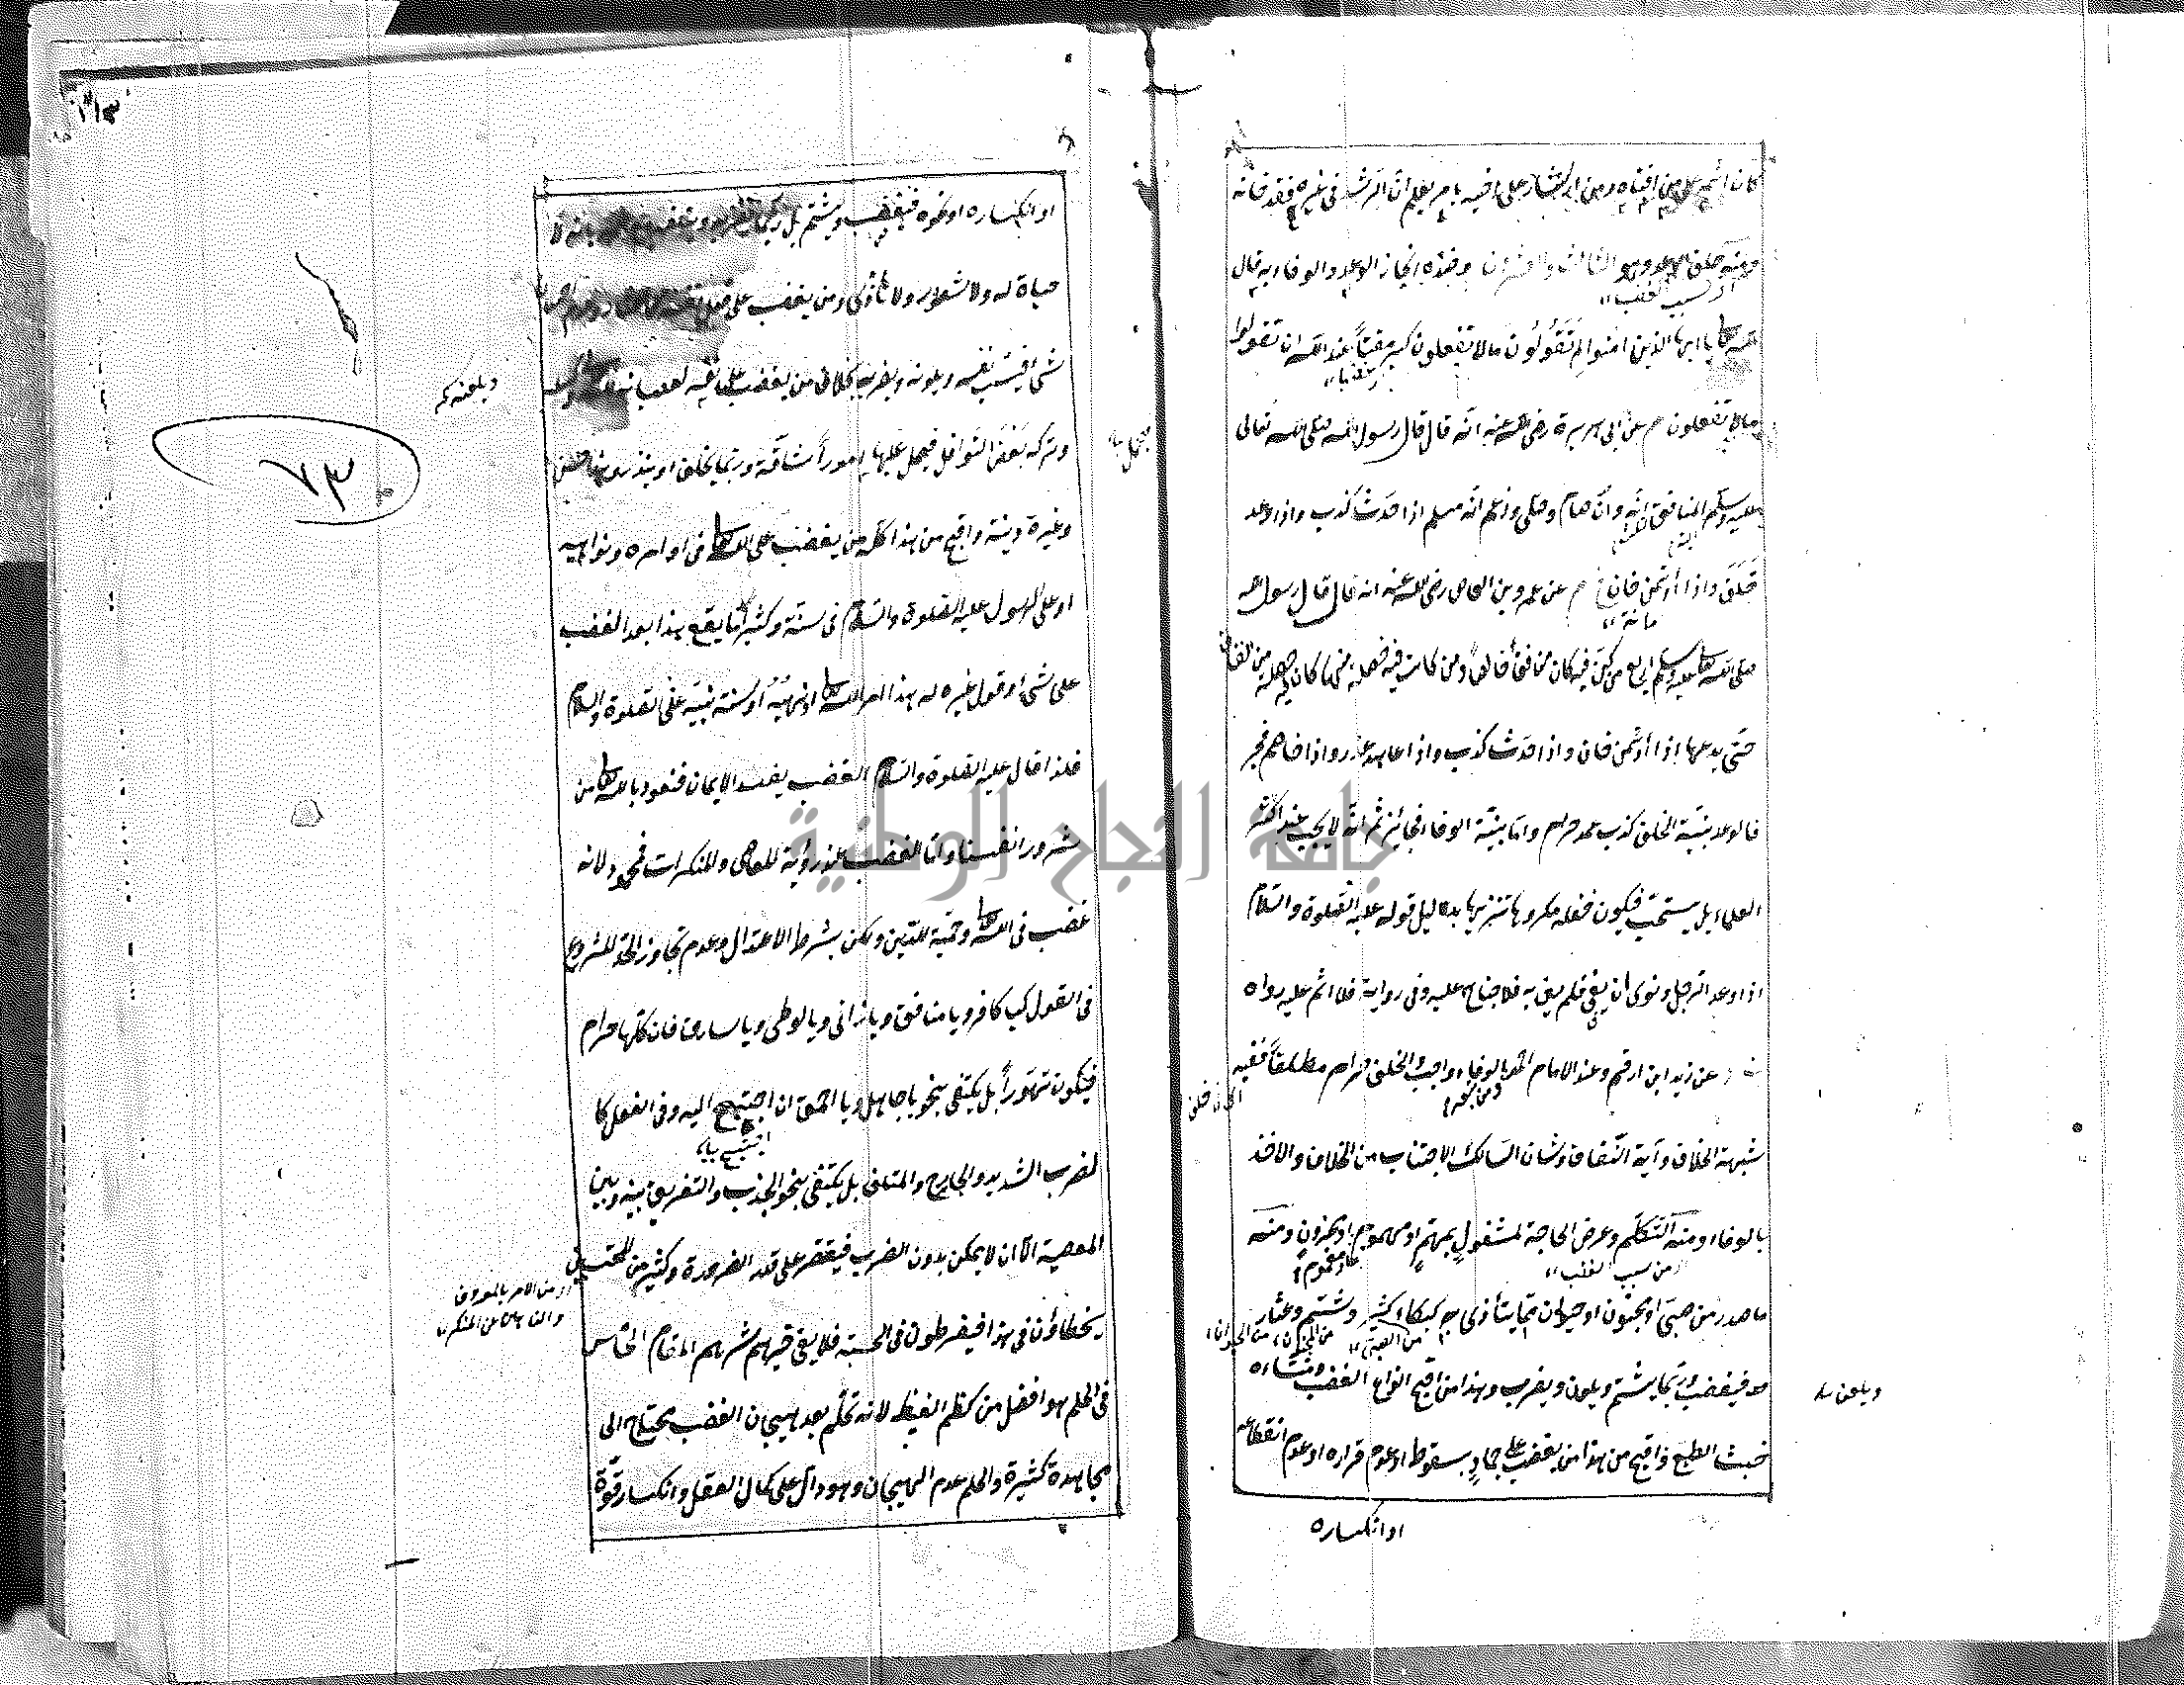 كان اثمه على من افتاه ومن اشار على اخيه بامر يعلم ان الرشد في غيره فقد خانه
ومنه خلف الوعد وهو الثالث والعشرون وضده انجاز الوعد والوفاء به قال
الله تعالى يا ايها الذين امنوا لم تقولون ما لا تفعلون كبر مقتاً عند الله ان تقولوا
ما لا تفعلون م عن ابي هريرة رضي الله عنه انه قال قال رسول الله صلى الله تعالى
عليه وسلم المنافق وان صام وصلى وزعم انه مسلم اذا حدث كذب واذا وعد
خلف واذا اؤتمن خان خ م عن عمرو بن العاص رضي الله عنه انه قال قال رسول الله
صلى الله تعالى عليه وسلم اربع من كن فيه كان منافقا خالصاً ومن كانت فيه خصلة منها كان فيه خصلة من النفاق
حتى يدعها اذا اؤتمن خان واذا حدث كذب واذا عاهد غدر واذا خاصم فجر
فالوعد بنية الخلف كذب عمد حرام واما بنية الوفاء فجائز ثم انه لا يجب عند اكثر
العلماء بل يستحب فيكون خلفه مكروها تنزيها بدليل قوله عليه الصلوة والسلام
اذا وعد الرجل ونوى ان يفي فلم يف به فلا جناح عليه وفي رواية فلا اثم عليه رواه
عن زيد ابن ارقم وعند الامام احمد الوفاء واجب والخلف حرام مطلقاً ففيه
شبهة الخلاف وآية النفاق وشان السالك الاجتناب من الخلاف والاخذ
بالوفاء ومنه التكلم وعرض الحاجة لمشغول بمهم او مهموم او محزون ومنه
او مغموم
من سبب الغضب
ما صدر من صبي او مجنون او حيوان مما يتأذى به كبكاء كثير وشتم وعثار
من الصبي من المجنون من الحيوان
فيغضب وربما يشتم ويلعن ويضرب وهذا من اقبح انواع الغضب ومنشاءه
ويلعن
خبث الطبع واقبح من هذا من يغضب على جماد بسقوط او عدم قراره او عدم انقطاعه
او انكساره
٧٣
او انكساره او نحوه فيغضب ويشتم بل ربما
حياة له ولا شعور ولا تأذى ومن يغضب على
شئ فيسب نفسه ويلعنه ويضربه بخلاف من يغضب على نفسه
وتركه بعض النوافل فيحمل عليها امورا شاقة وربما يحلف او ينذر وهذا حسن
وغيرة دينية واقبح من هذا كله من يغضب على الله تعالى في اوامره ونواهيه
او على الرسول عليه الصلوة والسلام في سنته وكثيرا ما يقع هذا بعد الغضب
على شئ وقول غيره له هذا امر الله تعالى او نهيه او سنة نبيه على الصلوة والسلام
فلذا قال عليه الصلوة والسلام الغضب يفسد الايمان فنعوذ بالله تعالى من
شرور انفسنا واما الغضب عند رؤية المعاصي والمنكرات فمحمود لانه
غضب في الله تعالى وحمية للدين ولكن بشرط الاعتدال وعدم تجاوز الحد المشروع
في القول كيا كافر ويا منافق ويا زاني ويا لوطي ويا سارق فان كلها حرام
فيكون تهوراً بل يكتفى بنحو يا جاهل ويا احمق ان احتيج اليه وفي الفعل كا
لضرب الشديد والجارح والمتلف بل يكتفى بنحو الجذب والتفريق بينه وبين
المعصية الا ان لا يمكن بدون الضرب فيقتصر على قدر الضرورة وكثير من المحتسبين
من الامر بالمعروف
والناهى من المنكر
يخطاؤن في هذا فيفرطون في الحسبة فلا يفي خيرهم شرهم المقام الخامس
في الحلم هو افضل من كظم الغيظ لانه تحلم بعد هيجان الغضب محتاج الى
مجاهدة كثيرة والحلم عدم الهيجان وهو دال على كمال العقل وانكسار قوة
جامعة النجاح الوطنية